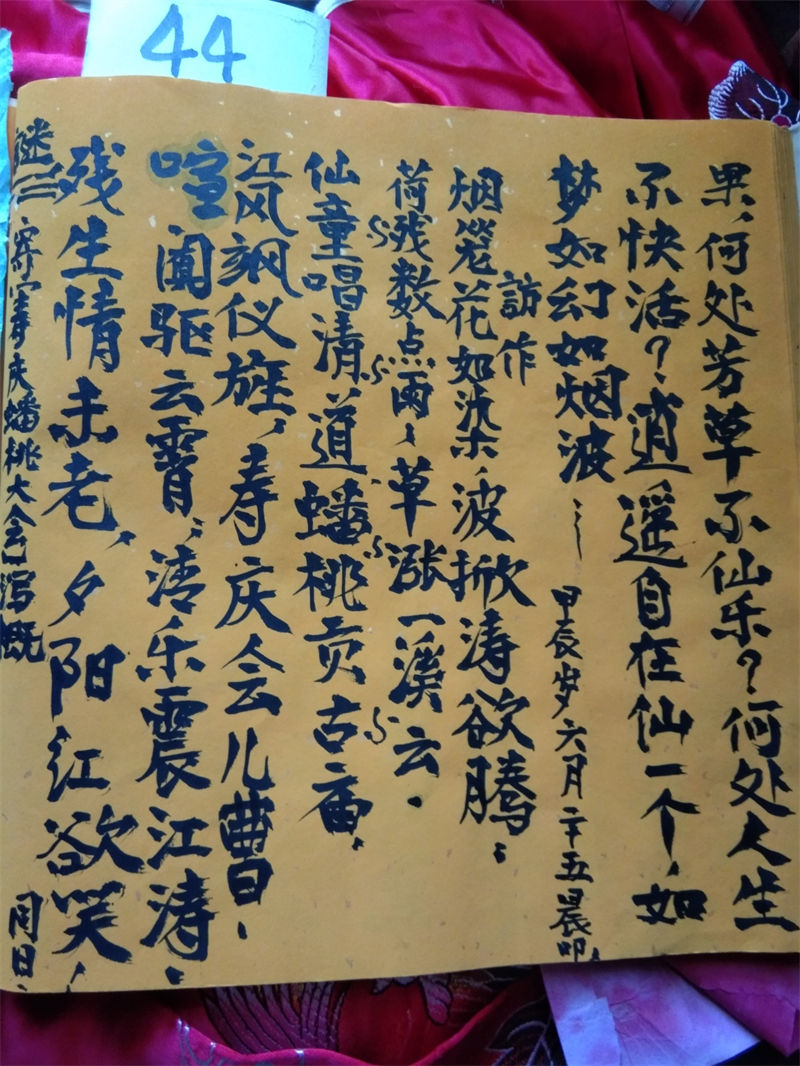 44
果，何处芳草不仙乐？何处人生
不快活？逍遥自在仙一个，如
梦如幻如烟波
甲辰岁六月二十五晨叩
訪作
烟笼花如染，波掀涛欲腾；
荷残数点雨，草涨一溪云。
仙童唱清道蟠桃贡古庙，
江风飒仪旌，寿庆会儿曹。
喧阗驱云霄；清乐震江涛。
残生情未老，夕阳红欲笑，
谜仁寄寿庆蟠桃大会写慨
同日